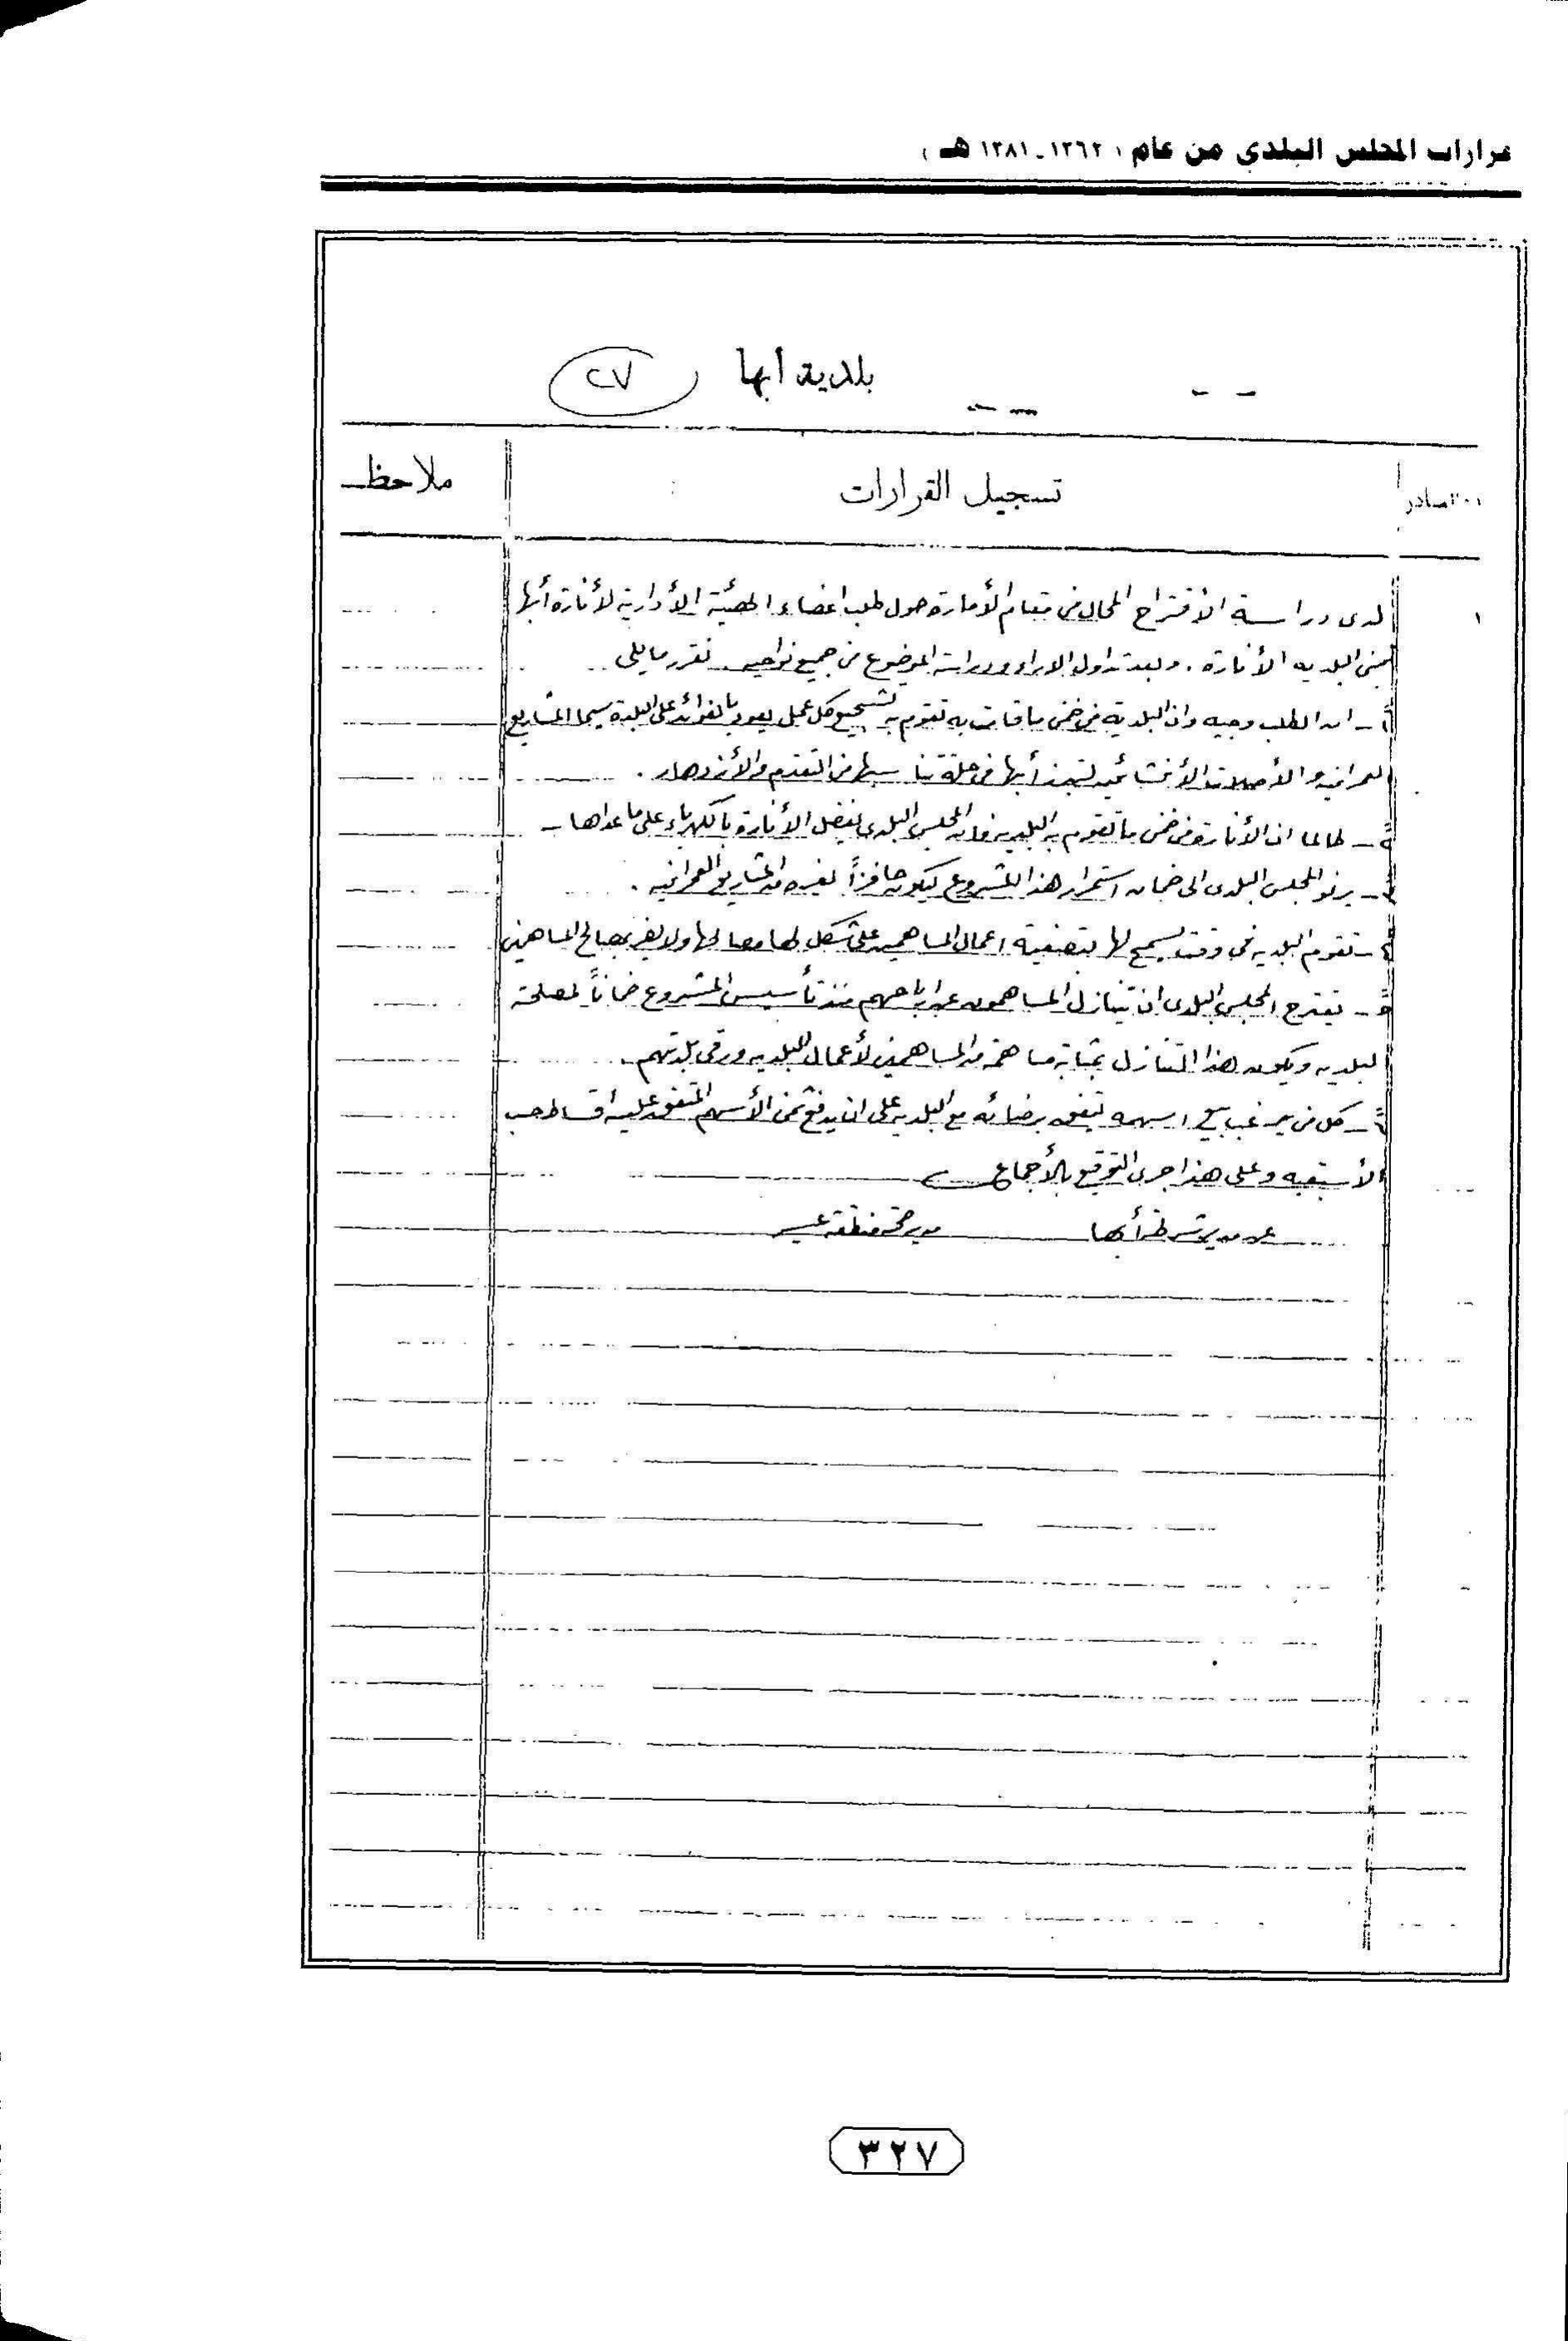 قرارات المجلس البلدي من عام ( ١٣٦٢ - ١٣٨١ هـ )
بلدية ابها ٢٧
الصادر تسجيل القرارات ملاحظـ
١ لدى دراسة الاقتراح المحال من مقام الأمارة حول طلب اعضاء الهيئة الأدارية لأنارة أبها
البلدية الأنارة . وبعد تداول الاراء ودراسة الموضوع من جميع نواحيه تقرر مايلي
١ - ان الطلب وجيه وان البلدية من ضمن ما قامت به تقوم به تشجيع كل عمل يعود بالفوائد على البلدة سيما المشاريع
العمرانيه والأصلاحات الأنشائيه لتبرز أبها في حلة تناسبها من التقدم والأزدهار .
٢ - طالما ان الأنارة من ضمن ما تقوم به البلديه فان المجلس البلدى يفضل الأنارة بالكهرباء على ما عداها -
٣ - يرنو المجلس البلدى الى ضمان استمرار هذا المشروع ليكون حافزاً لغيره من المشاريع العمرانيه .
٤ - تقوم البلديه فى وقت يسمح لها بتصفية اعمال المساهمين على شكل لها ولا يضر بصالح المساهمين
٥ - يقترح المجلس البلدى ان يتنازل المساهمون عن ارباحهم منذ تأسيس المشروع ضماناً لمصلحة
البلديه ويكون هذا التنازل بمثابة مساهمة من المساهمين لأعمال البلديه ورقى بلدتهم .
٦ - كل من يرغب بيع اسهمه يتفق برضائه مع البلديه على ان يدفع ثمن الأسهم المتفق عليه اقساط حسب
الأسبقيه وعلى هذا جرى التوقيع بالأجماع
عن مدير شرطة أبها مدير صحة منطقة عسير
٣٢٧